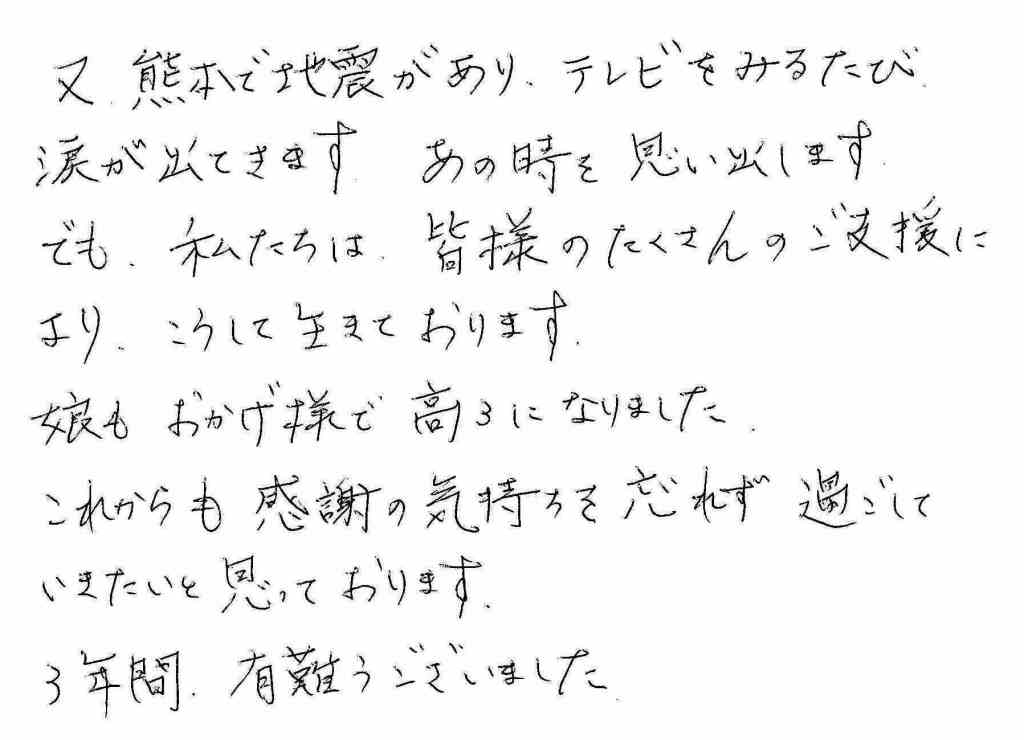 又、熊本で地震があり、テレビをみるたび、
涙が出てきます。 あの時を思い出します。
でも、私たちは、皆様のたくさんのご支援に
より、こうして生きております。
娘もおかげ様で高3になりました。
これからも感謝の気持ちを忘れず過ごして
いきたいと思っております。
3年間、有難うございました。